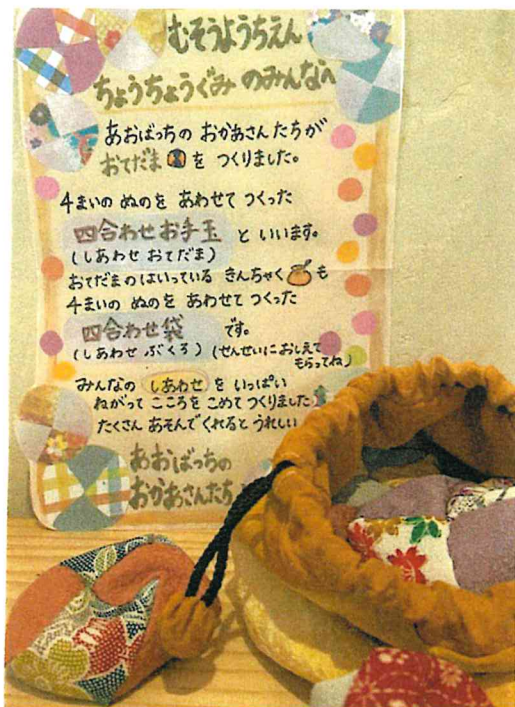 むそうようちえん
ちょうちょうぐみ のみんなへ
あおばっちの おかあさんたちが
おてだま を つくりました。
4まいの ぬのを あわせて つくった
四合わせお手玉 と いいます。
(しあわせ おてだま)
おてだまのはいっている きんちゃく も
4まいの ぬのを あわせて つくった
四合わせ袋 です。
(しあわせ ぶくろ) (せんせいにおしえて
もらってね)
みんなの しあわせ を いっぱい
ねがって こころを こめて つくりました
たくさん あそんでくれると うれしい
あおばっちの
おかあさんたち